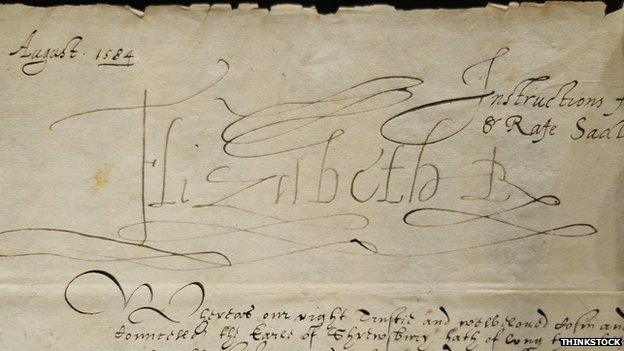 August · 1584
Instructions f
& Rafe Sadl
Elizabeth R
Whereas our right Trustie and welbeloved Cosin and
Councello the Earle of Shrewsbury hath of long t
THINKSTOCK